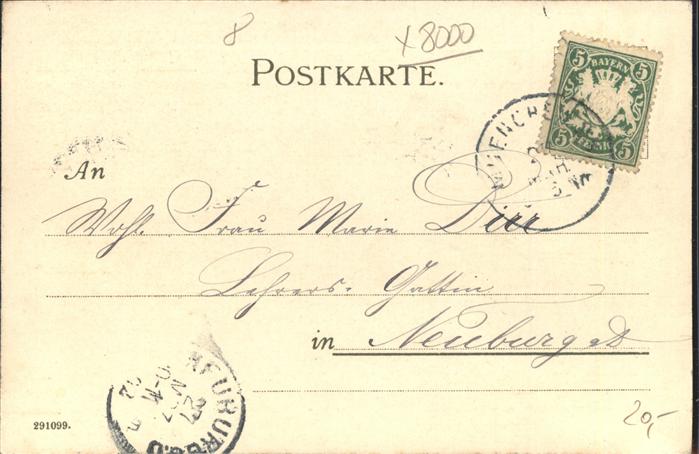 8
x 8000
POSTKARTE.
5 BAYERN 5
5 PFENNIG 5
An
Wohl. Frau Marie Dirr
Lehrers-Gattin
in Neuburg a/D
NEUBURG a.D.
291099.
20,-